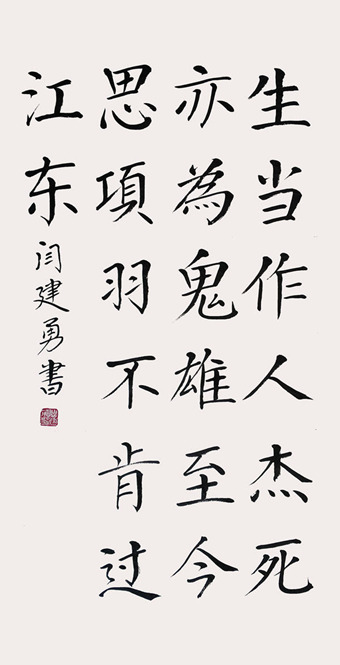 生当作人杰死
亦為鬼雄至今
思項羽不肯过
江东
闫建勇書